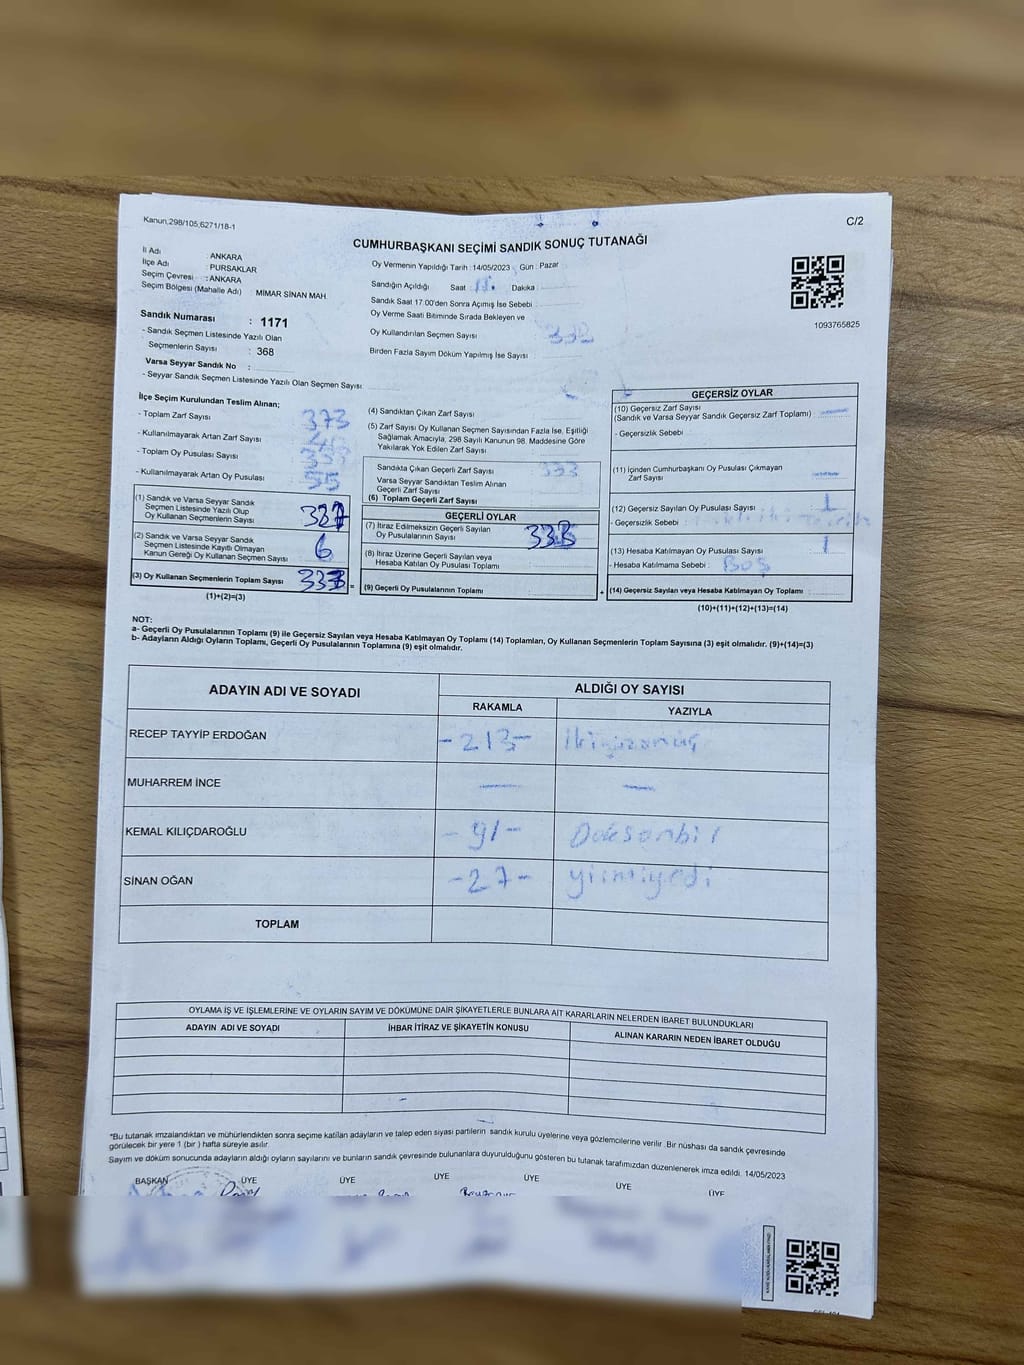 Kanun,298/105,6271/18-1
C/2
CUMHURBAŞKANI SEÇİMİ SANDIK SONUÇ TUTANAĞI
İl Adı : ANKARA
İlçe Adı : PURSAKLAR
Seçim Çevresi : ANKARA
Seçim Bölgesi (Mahalle Adı) MİMAR SİNAN MAH.
Sandık Numarası : 1171
- Sandık Seçmen Listesinde Yazılı Olan
Seçmenlerin Sayısı : 368
Varsa Seyyar Sandık No :
- Seyyar Sandık Seçmen Listesinde Yazılı Olan Seçmen Sayısı
Oy Vermenin Yapıldığı Tarih : 14/05/2023 Gün : Pazar
Sandığın Açıldığı Saat Dakika
Sandık Saat 17:00'den Sonra Açımış İse Sebebi
Oy Verme Saati Bitiminde Sırada Bekleyen ve
Oy Kullandırılan Seçmen Sayısı
Birden Fazla Sayım Döküm Yapılmış İse Sayısı
1093765825
İlçe Seçim Kurulundan Teslim Alınan;
- Toplam Zarf Sayısı 373
- Kullanılmayarak Artan Zarf Sayısı
- Toplam Oy Pusulası Sayısı
- Kullanılmayarak Artan Oy Pusulası
(1) Sandık ve Varsa Seyyar Sandık
Seçmen Listesinde Yazılı Olup
Oy Kullanan Seçmenlerin Sayısı
(2) Sandık ve Varsa Seyyar Sandık
Seçmen Listesinde Kayıtlı Olmayan
Kanun Gereği Oy Kullanan Seçmen Sayısı 6
(3) Oy Kullanan Seçmenlerin Toplam Sayısı
(1)+(2)=(3)
(4) Sandıktan Çıkan Zarf Sayısı
(5) Zarf Sayısı Oy Kullanan Seçmen Sayısından Fazla İse, Eşitliği
Sağlamak Amacıyla, 298 Sayılı Kanunun 98. Maddesine Göre
Yakılarak Yok Edilen Zarf Sayısı
Sandıkta Çıkan Geçerli Zarf Sayısı 333
Varsa Seyyar Sandıktan Teslim Alınan
Geçerli Zarf Sayısı
(6) Toplam Geçerli Zarf Sayısı
GEÇERLİ OYLAR
(7) İtiraz Edilmeksizin Geçerli Sayılan
Oy Pusulalarının Sayısı
(8) İtiraz Üzerine Geçerli Sayılan veya
Hesaba Katılan Oy Pusulası Toplamı
= (9) Geçerli Oy Pusulalarının Toplamı
GEÇERSİZ OYLAR
(10) Geçersiz Zarf Sayısı
(Sandık ve Varsa Seyyar Sandık Geçersiz Zarf Toplamı)
- Geçersizlik Sebebi
(11) İçinden Cumhurbaşkanı Oy Pusulası Çıkmayan
Zarf Sayısı
(12) Geçersiz Sayılan Oy Pusulası Sayısı 1
- Geçersizlik Sebebi
(13) Hesaba Katılmayan Oy Pusulası Sayısı 1
- Hesaba Katılmama Sebebi : BOŞ
+ (14) Geçersiz Sayılan veya Hesaba Katılmayan Oy Toplamı
(10)+(11)+(12)+(13)=(14)
NOT:
a- Geçerli Oy Pusulalarının Toplamı (9) ile Geçersiz Sayılan veya Hesaba Katılmayan Oy Toplamı (14) Toplamları, Oy Kullanan Seçmenlerin Toplam Sayısına (3) eşit olmalıdır. (9)+(14)=(3)
b- Adayların Aldığı Oyların Toplamı, Geçerli Oy Pusulalarının Toplamına (9) eşit olmalıdır.
ADAYIN ADI VE SOYADI
ALDIĞI OY SAYISI
RAKAMLA
YAZIYLA
RECEP TAYYİP ERDOĞAN -213- İkiyüzonüç
MUHARREM İNCE — —
KEMAL KILIÇDAROĞLU -91- Doksanbir
SİNAN OĞAN -27- yirmiyedi
TOPLAM
OYLAMA İŞ VE İŞLEMLERİNE VE OYLARIN SAYIM VE DÖKÜMÜNE DAİR ŞİKAYETLERLE BUNLARA AİT KARARLARIN NELERDEN İBARET BULUNDUKLARI
ADAYIN ADI VE SOYADI
İHBAR İTİRAZ VE ŞİKAYETİN KONUSU
ALINAN KARARIN NEDEN İBARET OLDUĞU
*Bu tutanak imzalandıktan ve mühürlendikten sonra seçime katılan adayların ve talep eden siyasi partilerin sandık kurulu üyelerine veya gözlemcilerine verilir. Bir nüshası da sandık çevresinde
görülecek bir yere 1 (bir) hafta süreyle asılır.
Sayım ve döküm sonucunda adayların aldığı oyların sayılarını ve bunların sandık çevresinde bulunanlara duyurulduğunu gösteren bu tutanak tarafımızdan düzenlenerek imza edildi. 14/05/2023
BAŞKAN ÜYE ÜYE ÜYE ÜYE ÜYE ÜYE